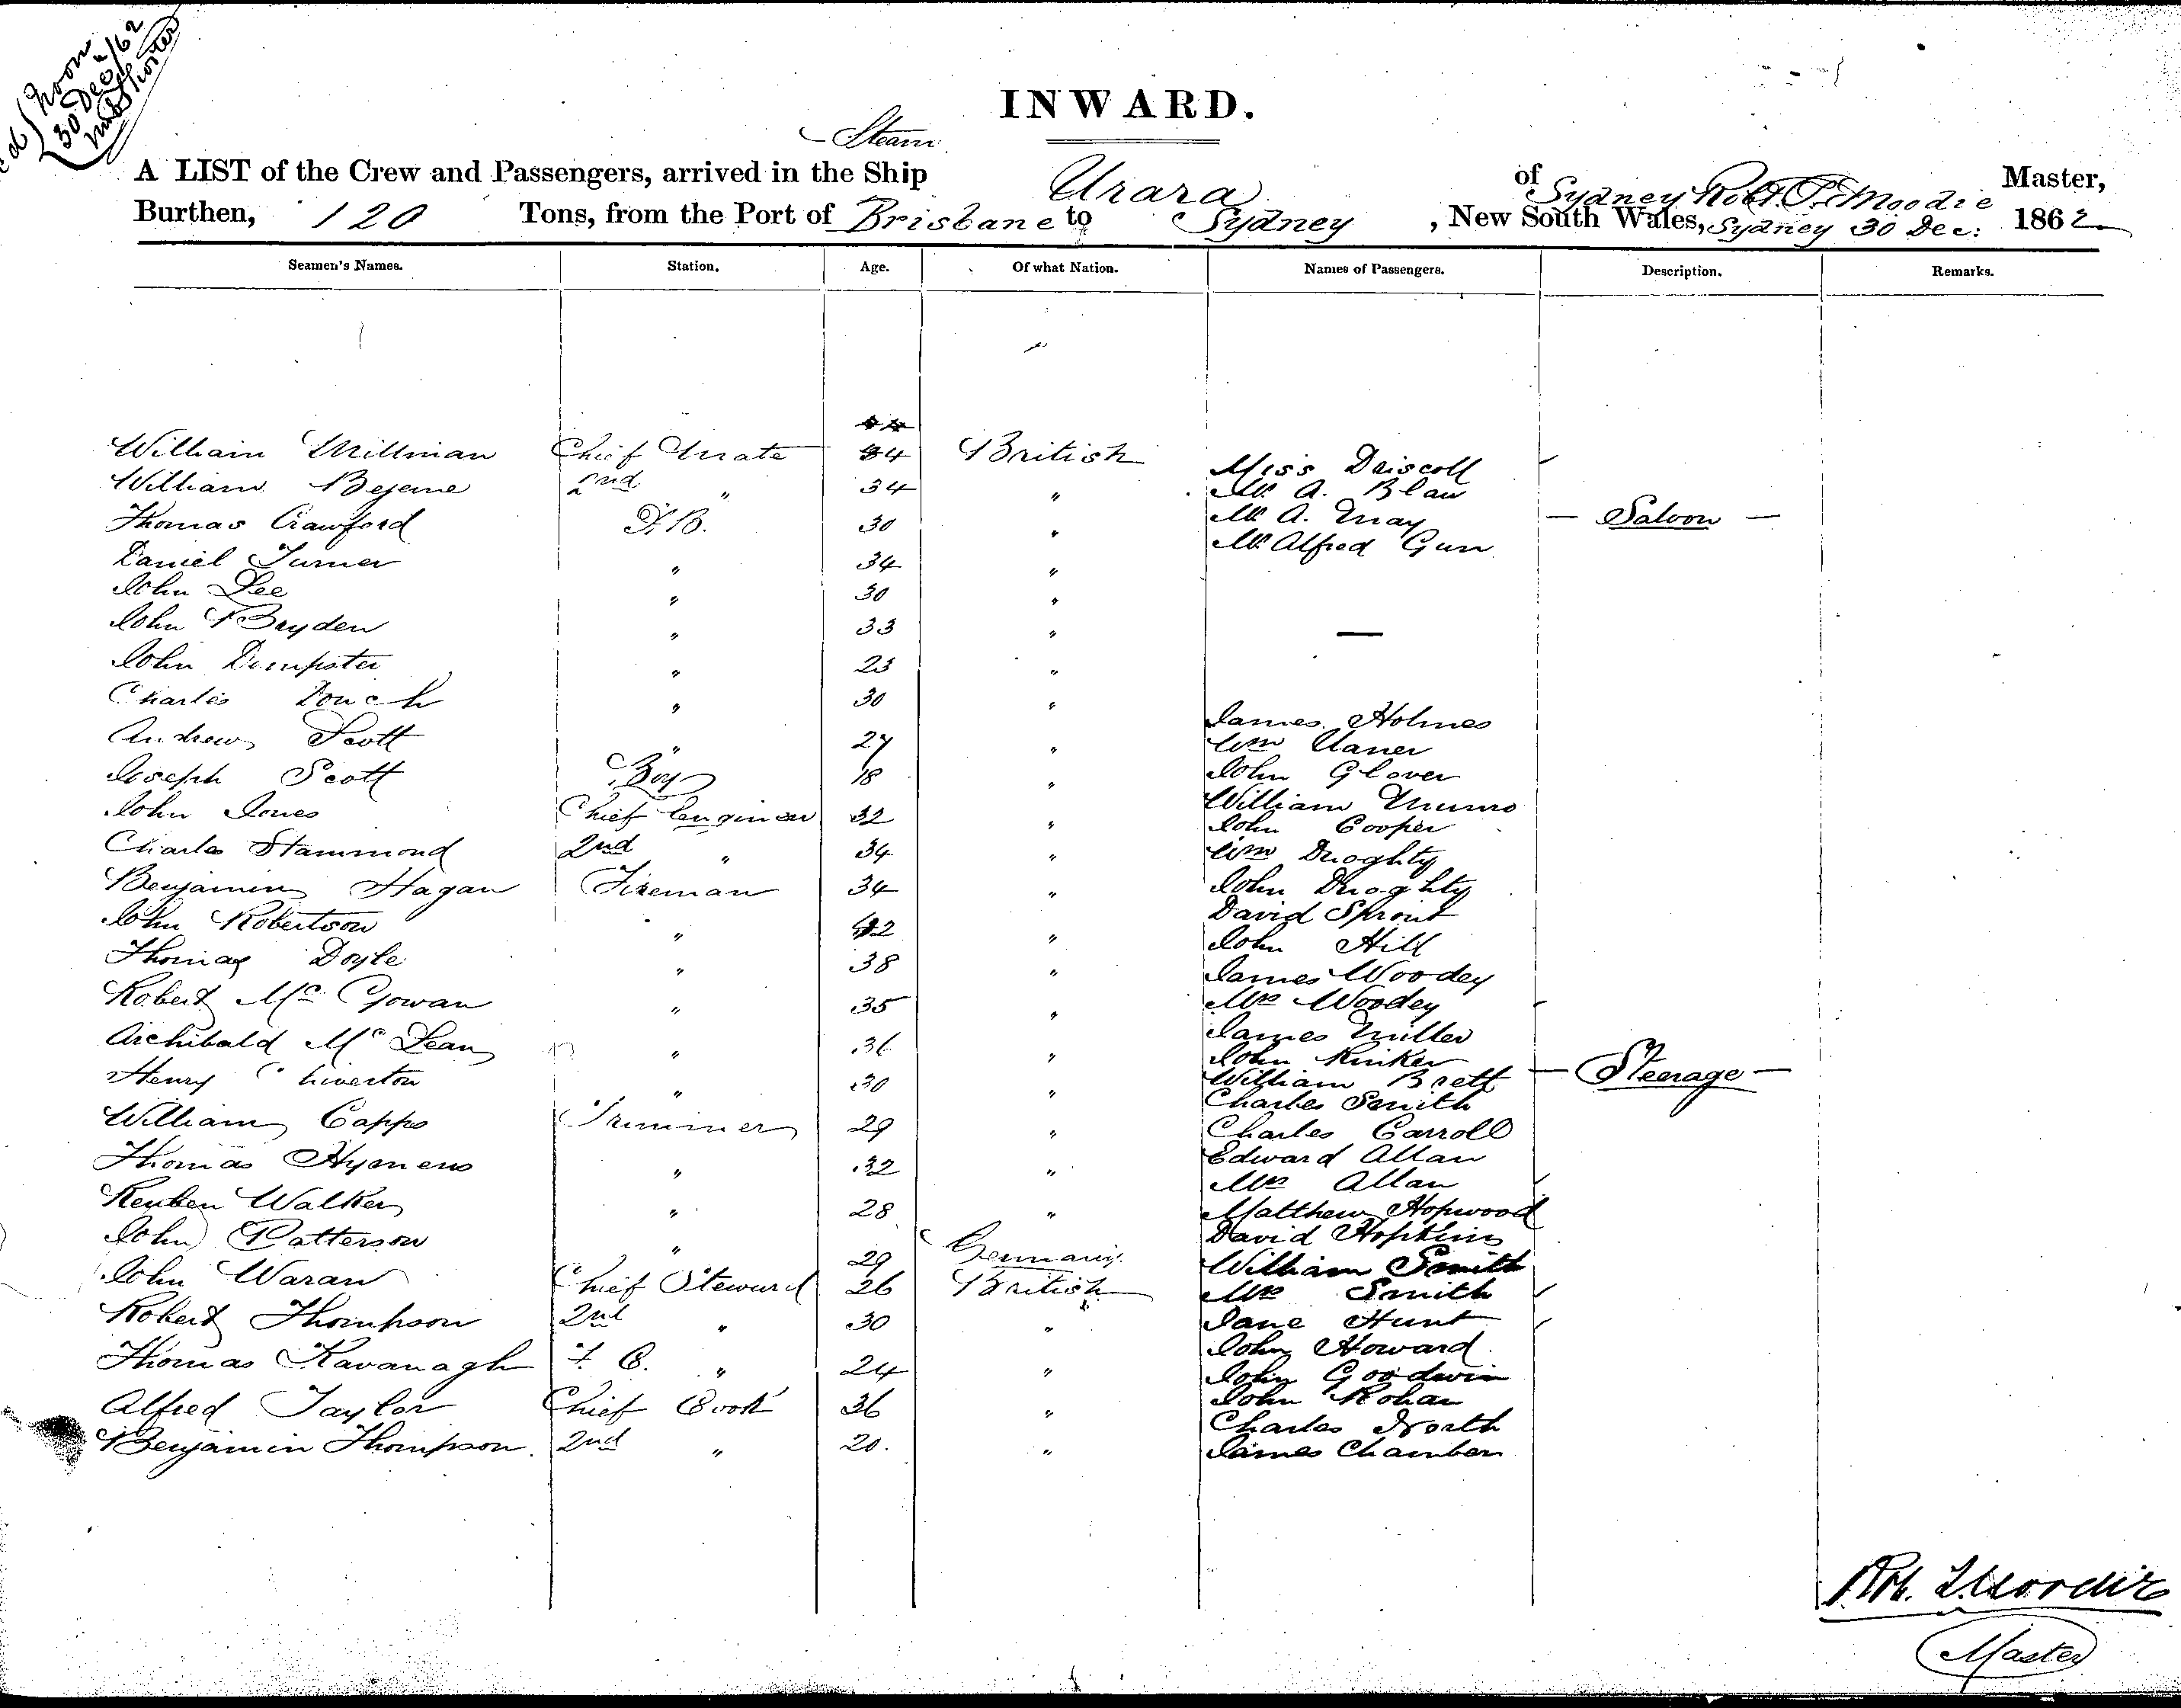 noon
30 Dec /62
INWARD.
Steam
A LIST of the Crew and Passengers, arrived in the Ship Urara of Sydney Robt. T. Moodie Master,
Burthen, 120 Tons, from the Port of Brisbane to Sydney, New South Wales, Sydney 30 Dec: 1862
Seamen's Names. Station. Age. Of what Nation. Names of Passengers. Description. Remarks.
William Millman Chief Mate 34 British
Miss Driscoll
William Bejeme 2nd " 34 "
Mr A. Blaw
Thomas Crawford F.B. 30 "
Mr A. May — Saloon —
Mr Alfred Gun
Daniel Turner " 34 "
John Lee " 30 "
John Bryden " 33 "
John Dempster " 23 "
Charles Douch " 30 "
James Holmes
Andrew Scott " 27 "
Wm
John Glover
Joseph Scott Boy 18 "
William Munro
John Jones Chief Engineer 32 "
John Cooper
Charles Hammond 2nd " 34 "
Wm Duoghty
Benjamin Hagan Fireman 34 "
John Duoghty
David Sprout
John Robertson " 42 "
John Hill
Thomas Doyle " 38 "
James Woodey
Robert McGowan " 35 "
Mrs Woodey
James Miller
Archibald McLean " 36 "
John Kinker
Henry Chiverton " 30 "
William Brett — Steerage —
Charles Smith
William Capps Trimmer 29 "
Charles Carroll
Edward Allan
Thomas Hymens " 32 "
Mrs Allan
Reuben Walker " 28 "
Matthew Hopwood
John Patterson " 29 Germany
David Hopkins
William Smith
John Waran Chief Steward 26 British
Mrs Smith
Robert Thompson 2nd " 30 "
Jane Hunt
John Howard
Thomas Kavanagh F. C. " 24 "
John Goodwin
John Rohan
Alfred Taylor Chief Cook 36 "
Charles North
Benjamin Thompson. 2nd " 20. "
James Chambers
Rob. T. Moodie
Master